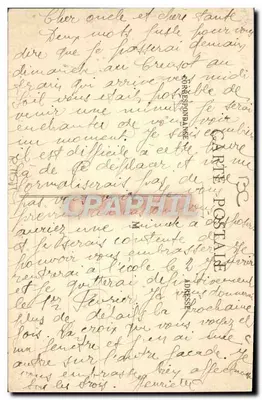 Cher oncle et chère tante
Deux mots juste pour vous
dire que je passerai demain
dimanche au Creusot au
train qui arrive vers midi
S'il vous était possible de
venir une minute je serais
enchantée de vous voir
un moment. Je sais combien
il est difficile à cette heure
là de se déplacer et ne me
formaliserais pas de ne
pas vous
auriez une minute à
et je serais contente de
pouvoir vous embrasser. Je
rentrerai à l'école le 2 janvier
et je quitterai définitivement
le 1er Février. Je vous donnerai
plus de détails la prochaine
fois. La croix que vous voyez est
ma fenêtre et j'en ai une
autre sur l'autre façade. Je
vous embrasse bien affectueusement
tous les trois. Henriette
CARTE POSTALE
CORRESPONDANCE
ADRESSE
M
CPHARTE